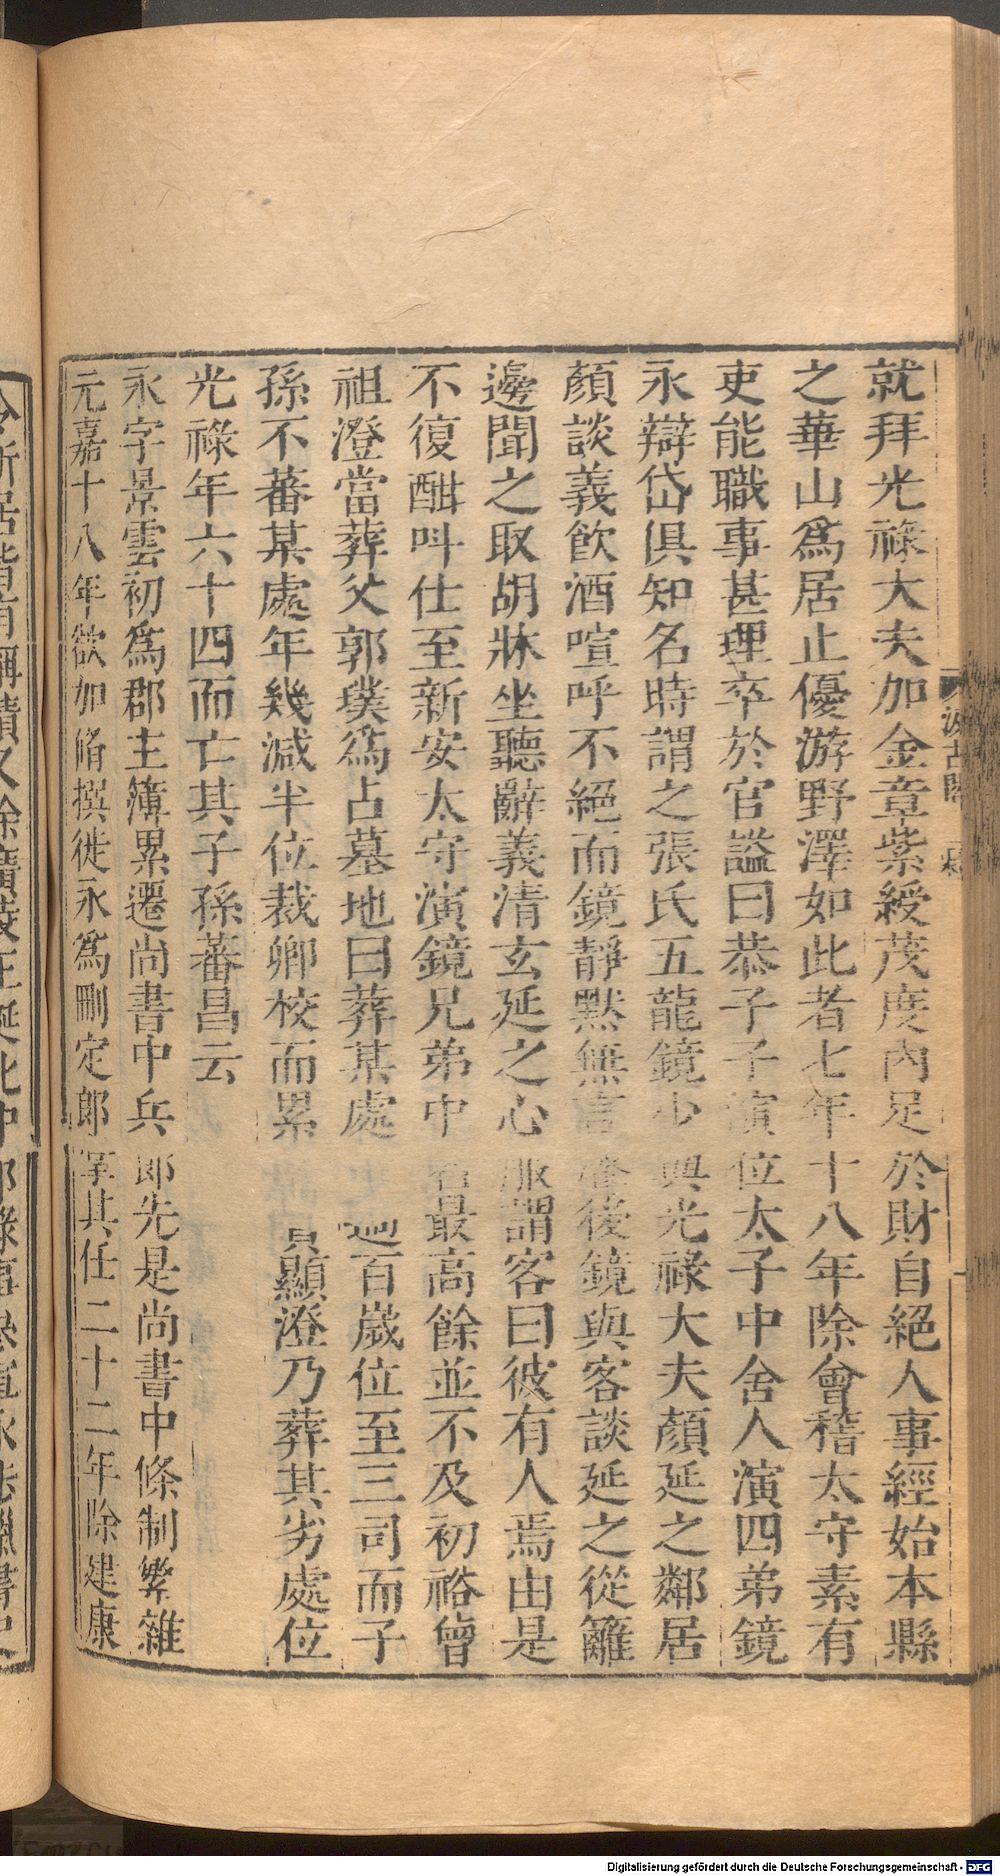 就拜光祿大夫加金章紫綬茂度內足於財自絕人事經始本縣
之華山爲居止優游野澤如此者七年十八年除會稽太守素有
吏能職事甚理卒於官謚曰恭子子演位太子中舍人演四弟鏡
永辯岱俱知名時謂之張氏五龍鏡少與光祿大夫顏延之鄰居
顏談義飮酒喧呼不絕而鏡靜默無言後鏡與客談延之從籬
邊聞之取胡牀坐聽辭義淸玄延之心服謂客曰彼有人焉由是
不復酣呌仕至新安太守演鏡兄弟中名最高餘並不及初裕曾
祖澄當葬父郭璞爲占墓地曰葬某處過百歲位至三司而子
孫不蕃某處年幾減半位裁卿校而累貴顯澄乃葬其劣處位
光祿年六十四而亡其子孫蕃昌云
永字景雲初爲郡主簿累遷尚書中兵郎先是尚書中條制繁雜
元嘉十八年欲加脩撰徙永爲刪定郎掌其任二十二年除建康
汲古閣
Digitalisierung gefördert durch die Deutsche Forschungsgemeinschaft - DFG